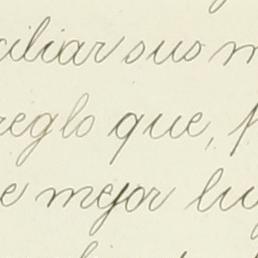 ciliar sus m
reglo que,
e mejor lu